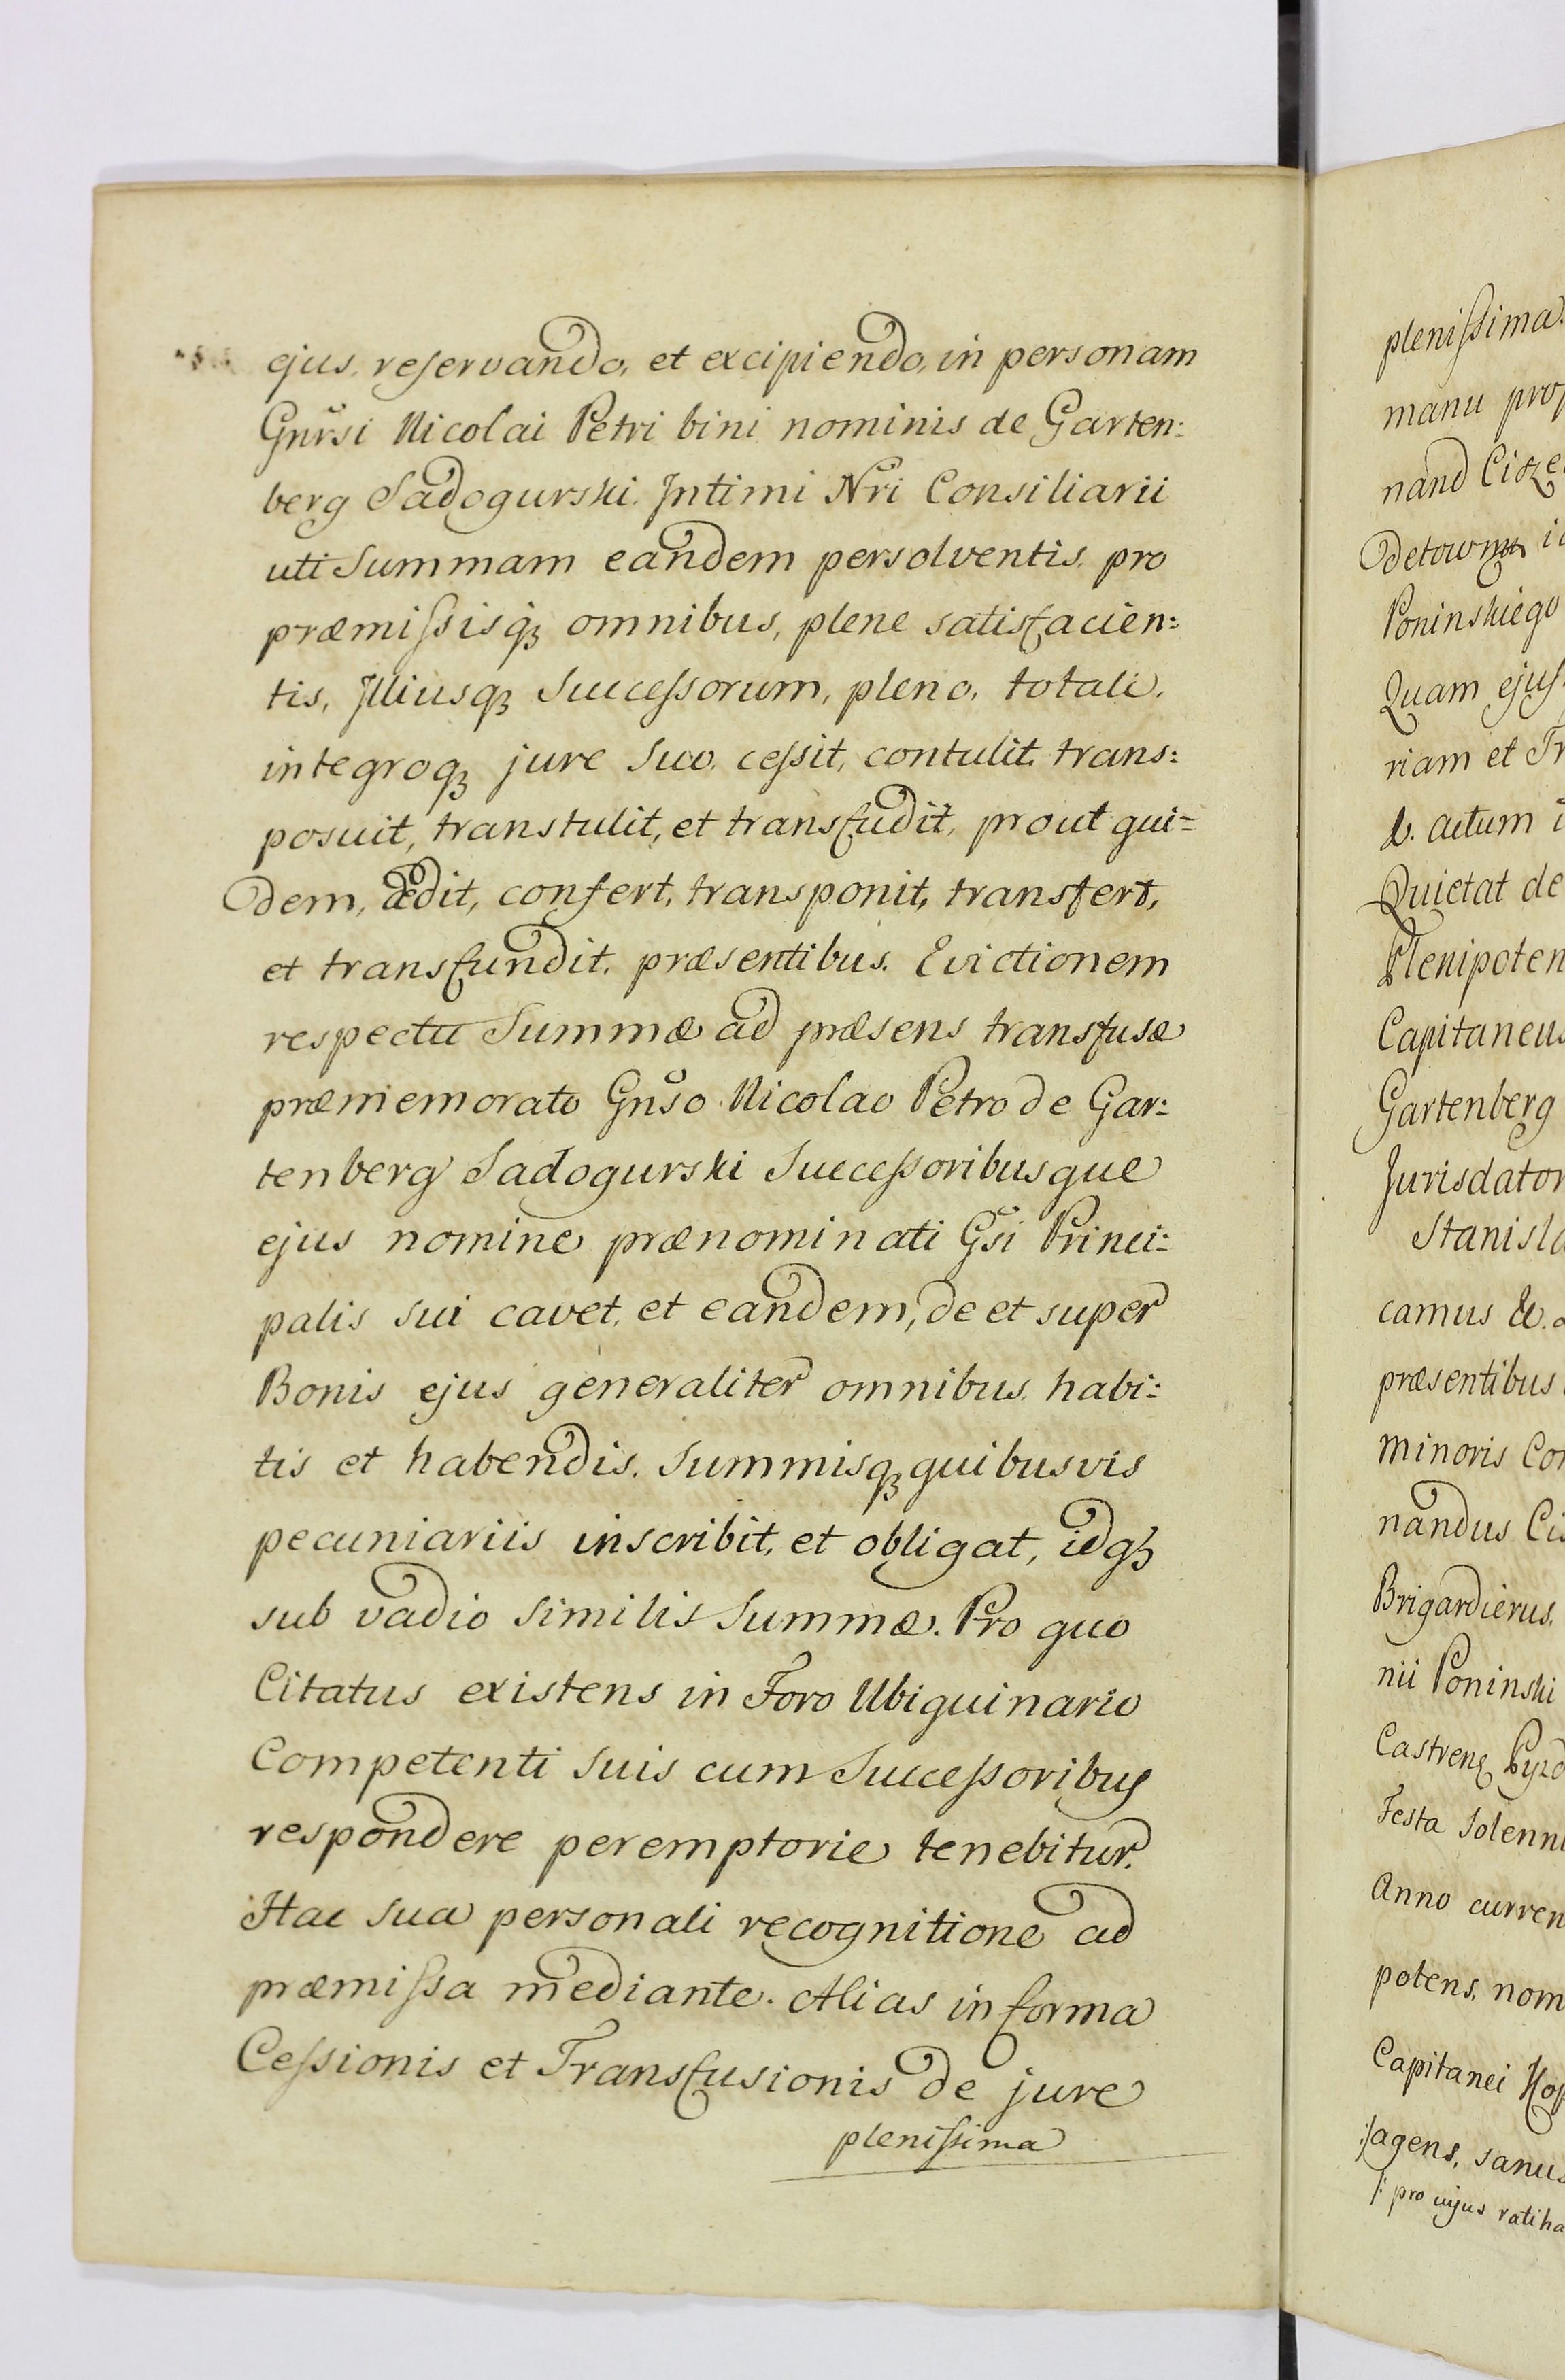 ejus, reservando, et excipiendo, in personam
Gnrsi Nicolai Petri bini nominis de Garten:
berg Sadogurski. Intimi Nri Consiliarii
uti Summam eandem persolventis, pro
præmissisq3 omnibus, plene satisfacien:
tis, Illiusq3 Successorum, pleno, totali,
integroq3 jure suo, cessit, contulit, trans:
posuit, transtulit, et transfudit, prout qui=
dem, cedit, confert, transponit, transfert,
et transfundit, præsentibus. Evictionem
respectu Summæ ad præsens transfusæ
præmemorato Gnso Nicolao Petro de Gar:
tenberg Sadogurski Successoribusque
ejus nomine prænominati Gsi Princi:
palis sui cavet, et eandem, de et super
Bonis ejus generaliter omnibus, habi:
tis et habendis, Summisq3 quibusvis
pecuniariis inscribit, et obligat, idq3
sub vadio similis Summæ. Pro quo
Citatus existens in Foro Ubiquinario
Competenti suis cum Successoribus
respondere peremptorie tenebitur.
Hac sua personali recognitione ad
præmissa mediante. Alias in forma
Cessionis et Transfusionis de jure
plenissima
plenissima
manu
nand
Poninskiego
Quam
riam et
&. actum
Quietat de
Capitaneus
Gartenberg
camus &.
præsentibus
minoris
nandus
Brigardierus,
nii Poninski
Castren
Festa Solenn
Anno curren
potens, nom
Capitanei
agens, sanus
pro cujus ratiha